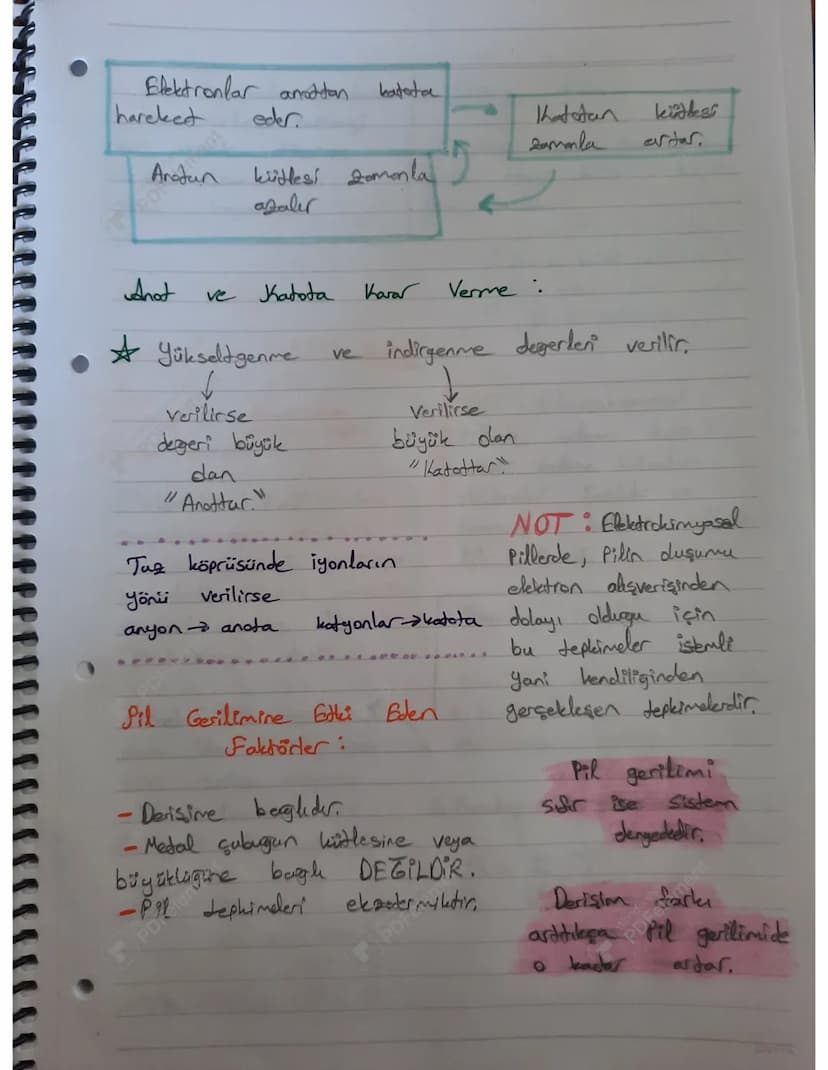 Elektronlar anottan katota
hareket eder.
Katotun kütlesi
zamanla artar.
Anotun kütlesi zamanla
azalır
Anot ve Katota Karar Verme :
☆ Yükseltgenme ve indirgenme degerleri verilir.
verilirse
degeri büyük
olan
"Anottur."
verilirse
büyük olan
"Katottur."
Tuz köprüsünde iyonların
yönü verilirse
anyon → anota katyonlar → katota
NOT : Elektrokimyasal
pillerde, pilin oluşumu
elektron alışverişinden
dolayı oldugu için
bu tepkimeler istemli
yani kendiliginden
gerçekleşen tepkimelerdir.
Pil Gerilimine Etki Eden
Faktörler :
- Derişime baglıdır.
- Metal çubugun kütlesine veya
büyüklügüne baglı DEĞİLDİR.
- Pil tepkimeleri ekzotermiktir.
Pil gerilimi
sıfır ise sistem
dengededir.
Derişim farkı
arttıkça pil gerilimide
o kadar artar.